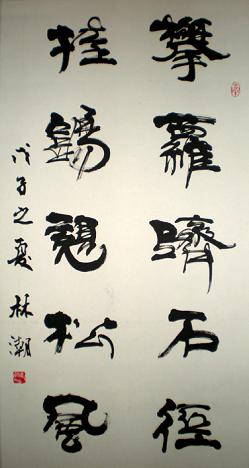 攀蘿躋石徑
挂錫憩松風
戊子之夏 林潮